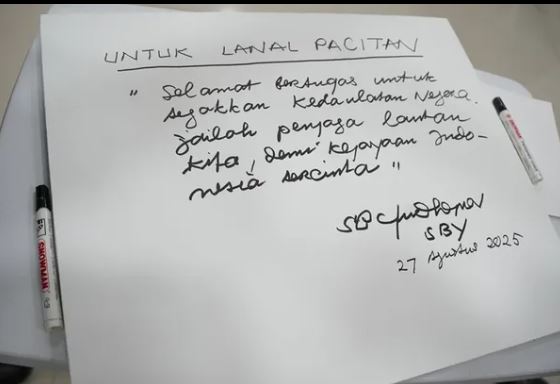 UNTUK LANAL PACITAN
" Selamat bertugas untuk
tegakkan Kedaulatan Negara.
jadilah penjaga lautan
kita, demi kejayaan Indo-
nesia tercinta "
SBYudhoyono
SBY
27 Agustus 2025
SNOWMAN